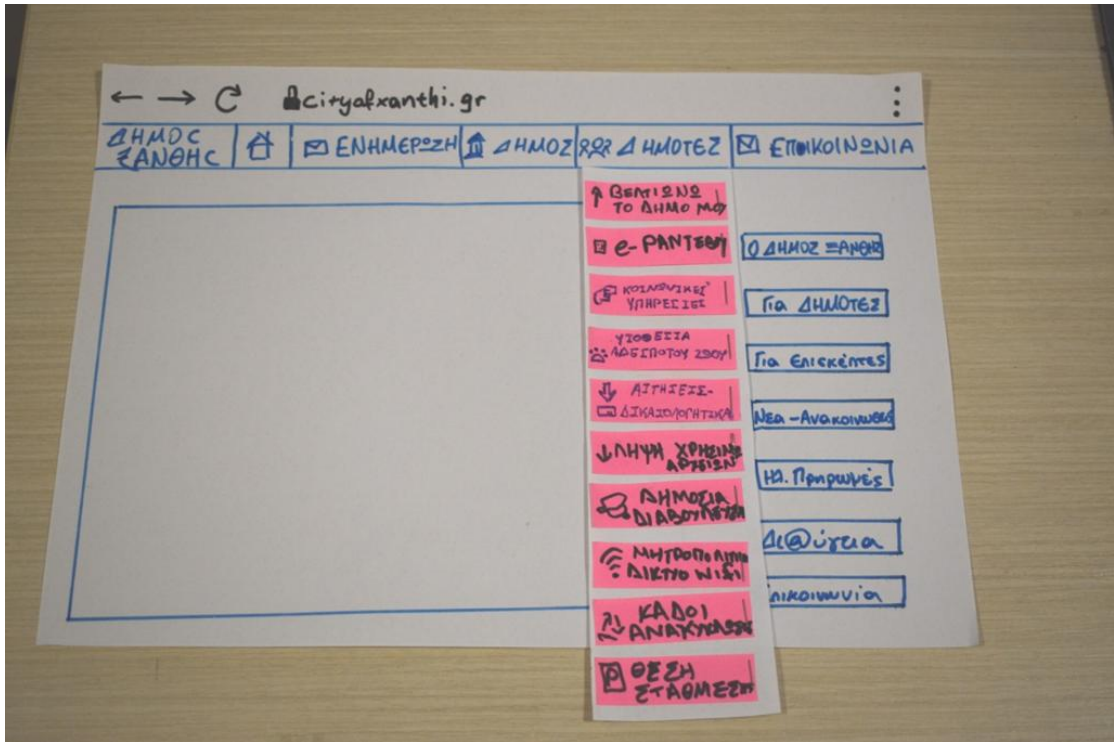 cityofxanthi.gr
ΔΗΜΟC
ΞΑΝΘΗC
ΕΝΗΜΕΡΩΣΗ
ΔΗΜΟΣ
ΔΗΜΟΤΕΣ
ΕΠΙΚΟΙΝΩΝΙΑ
ΒΕΛΤΙΩΝΩ
ΤΟ ΔΗΜΟ ΜΟΥ
e-ΡΑΝΤΕΒΟΥ
ΚΟΙΝΩΝΙΚΕΣ
ΥΠΗΡΕΣΙΕΣ
ΥΙΟΘΕΣΙΑ
ΑΔΕΣΠΟΤΟΥ ΖΩΟΥ
ΑΙΤΗΣΕΙΣ-
ΔΙΚΑΙΟΛΟΓΗΤΙΚΑ
ΛΗΨΗ ΧΡΗΣΙΜΩΝ
ΑΡΧΕΙΩΝ
ΔΗΜΟΣΙΑ
ΔΙΑΒΟΥΛΕΥΣΗ
ΔΙΚΤΥΟ WIFI
ΚΑΔΟΙ
ΑΝΑΚΥΚΛΩΣΗΣ
ΘΕΣΗ
Ο ΔΗΜΟΣ ΞΑΝΘΗΣ
Για ΔΗΜΟΤΕΣ
Για Επισκέπτες
Νέα - Ανακοινώσεις
Ηλ. Πληρωμές
Δι@ύγεια